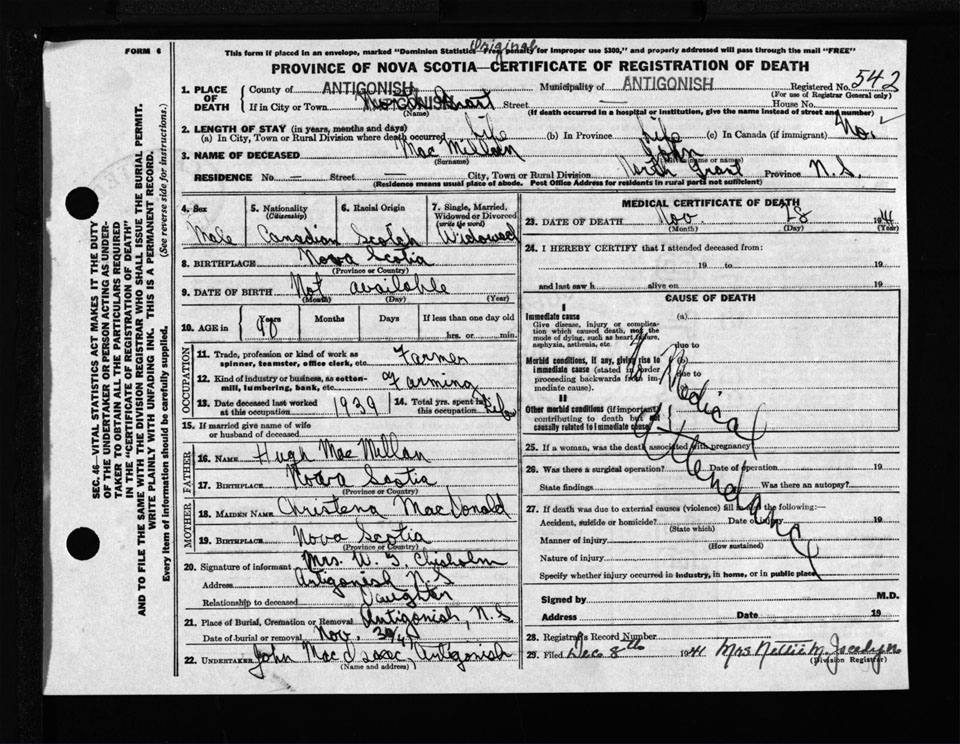 FORM 6
Original
This form if placed in an envelope, marked "Dominion Statistics—Free, penalty for improper use $300," and properly addressed will pass through the mail "FREE"
PROVINCE OF NOVA SCOTIA—CERTIFICATE OF REGISTRATION OF DEATH
SEC. 46—VITAL STATISTICS ACT MAKES IT THE DUTY
OF THE UNDERTAKER OR PERSON ACTING AS UNDER-
TAKER TO OBTAIN ALL THE PARTICULARS REQUIRED
IN THE "CERTIFICATE OF REGISTRATION OF DEATH"
AND TO FILE THE SAME WITH THE DIVISION REGISTRAR WHO SHALL ISSUE THE BURIAL PERMIT.
WRITE PLAINLY WITH UNFADING INK. THIS IS A PERMANENT RECORD.
Every item of information should be carefully supplied. (See reverse side for instructions.)
1. PLACE OF DEATH County of ANTIGONISH Municipality of ANTIGONISH Registered No. 542
(For use of Registrar General only)
If in City or Town North Grant Street — House No.
(Name) (If death occurred in a hospital or institution, give the name instead of street and number)
2. LENGTH OF STAY (in years, months and days)
(a) In City, Town or Rural Division where death occurred life (b) In Province life (c) In Canada (if immigrant) No.
3. NAME OF DECEASED Mac Millan John
(Surname) (Christian name or names)
RESIDENCE No. — Street — City, Town or Rural Division North Grant Province N.S.
(Residence means usual place of abode. Post Office Address for residents in rural parts not sufficient)
4. Sex 5. Nationality (Citizenship) 6. Racial Origin 7. Single, Married, Widowed or Divorced (write the word)
Male Canadian Scotch Widowed
8. BIRTHPLACE Nova Scotia
(Province or Country)
9. DATE OF BIRTH Not available
(Month) (Day) (Year)
10. AGE in Years Months Days If less than one day old
90 hrs. or min.
OCCUPATION
11. Trade, profession or kind of work as spinner, teamster, office clerk, etc. Farmer
12. Kind of industry or business, as cotton-mill, lumbering, bank, etc. Farming
13. Date deceased last worked at this occupation 1939 14. Total yrs. spent in this occupation life
15. If married give name of wife or husband of deceased
FATHER
16. NAME Hugh Mac Millan
17. BIRTHPLACE Nova Scotia
(Province or Country)
MOTHER
18. MAIDEN NAME Christena MacDonald
19. BIRTHPLACE Nova Scotia
(Province or Country)
20. Signature of informant Mrs. W. J. Chisholm
Address Antigonish N.S
Relationship to deceased Daughter
21. Place of Burial, Cremation or Removal Antigonish, N.S
Date of burial or removal Nov. 30/41
22. UNDERTAKER John Mac Isaac, Antigonish
(Name and address)
MEDICAL CERTIFICATE OF DEATH
23. DATE OF DEATH Nov. 28 1941
(Month) (Day) (Year)
24. I HEREBY CERTIFY that I attended deceased from:
19 to 19
and last saw h alive on 19
CAUSE OF DEATH
I
Immediate cause (a)
Give disease, injury or complication which caused death, not the mode of dying, such as heart failure, asphyxia, asthenia, etc. due to
Morbid conditions, if any, giving rise to immediate cause (stated in order proceeding backwards from immediate cause). (b) due to (c)
II
Other morbid conditions (if important) contributing to death but not causally related to immediate cause.
No Medical Attendance
25. If a woman, was the death associated with pregnancy?
26. Was there a surgical operation? Date of operation 19
State findings Was there an autopsy?
27. If death was due to external causes (violence) fill in also the following:—
Accident, suicide or homicide? Date of injury 19
(State which)
Manner of injury
(How sustained)
Nature of injury
Specify whether injury occurred in industry, in home, or in public place
Signed by M.D.
Address Date 19
28. Registrar's Record Number
29. Filed Dec 8th 1941 Mrs Nellie M. Jocelyn
(Division Registrar)